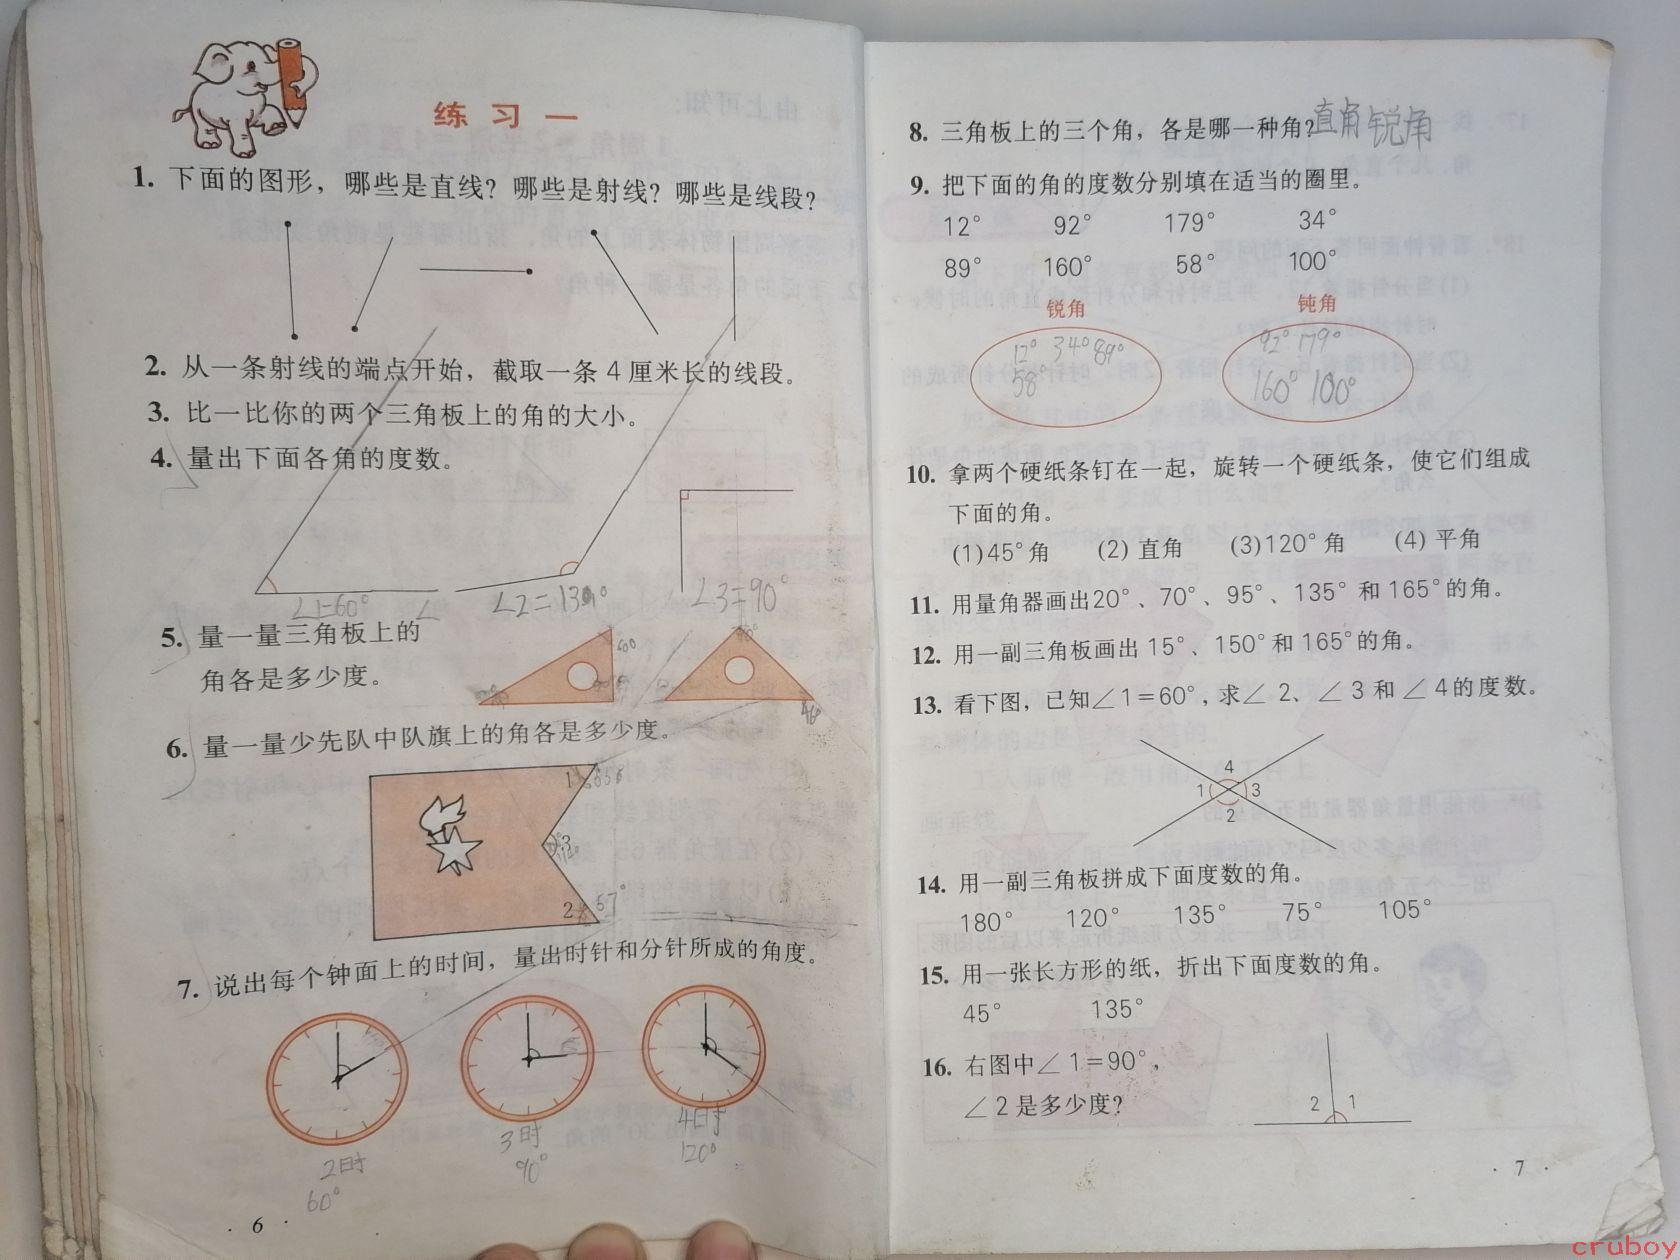 练 习 一
1. 下面的图形，哪些是直线？哪些是射线？哪些是线段？
2. 从一条射线的端点开始，截取一条 4 厘米长的线段。
3. 比一比你的两个三角板上的角的大小。
4. 量出下面各角的度数。
∠1=60° ∠ ∠2= ∠3=90°
5. 量一量三角板上的
角各是多少度。
6. 量一量少先队中队旗上的角各是多少度。
1
3
2 57°
7. 说出每个钟面上的时间，量出时针和分针所成的角度。
2时 3时 4时
60° 90° 120°
· 6 ·
8. 三角板上的三个角，各是哪一种角？直角 锐角
9. 把下面的角的度数分别填在适当的圈里。
12° 92° 179° 34°
89° 160° 58° 100°
锐角 钝角
12° 34° 89° 92° 179°
58° 160° 100°
10. 拿两个硬纸条钉在一起，旋转一个硬纸条，使它们组成
下面的角。
(1)45°角 (2) 直角 (3)120°角 (4) 平角
11. 用量角器画出20°、70°、95°、135° 和 165°的角。
12. 用一副三角板画出 15°、150°和 165°的角。
13. 看下图，已知∠1=60°，求∠ 2、∠ 3 和∠ 4的度数。
4
1 3
2
14. 用一副三角板拼成下面度数的角。
180° 120° 135° 75° 105°
15. 用一张长方形的纸，折出下面度数的角。
45° 135°
16. 右图中∠ 1=90°，
∠ 2是多少度？
2 1
· 7 ·
cruboy